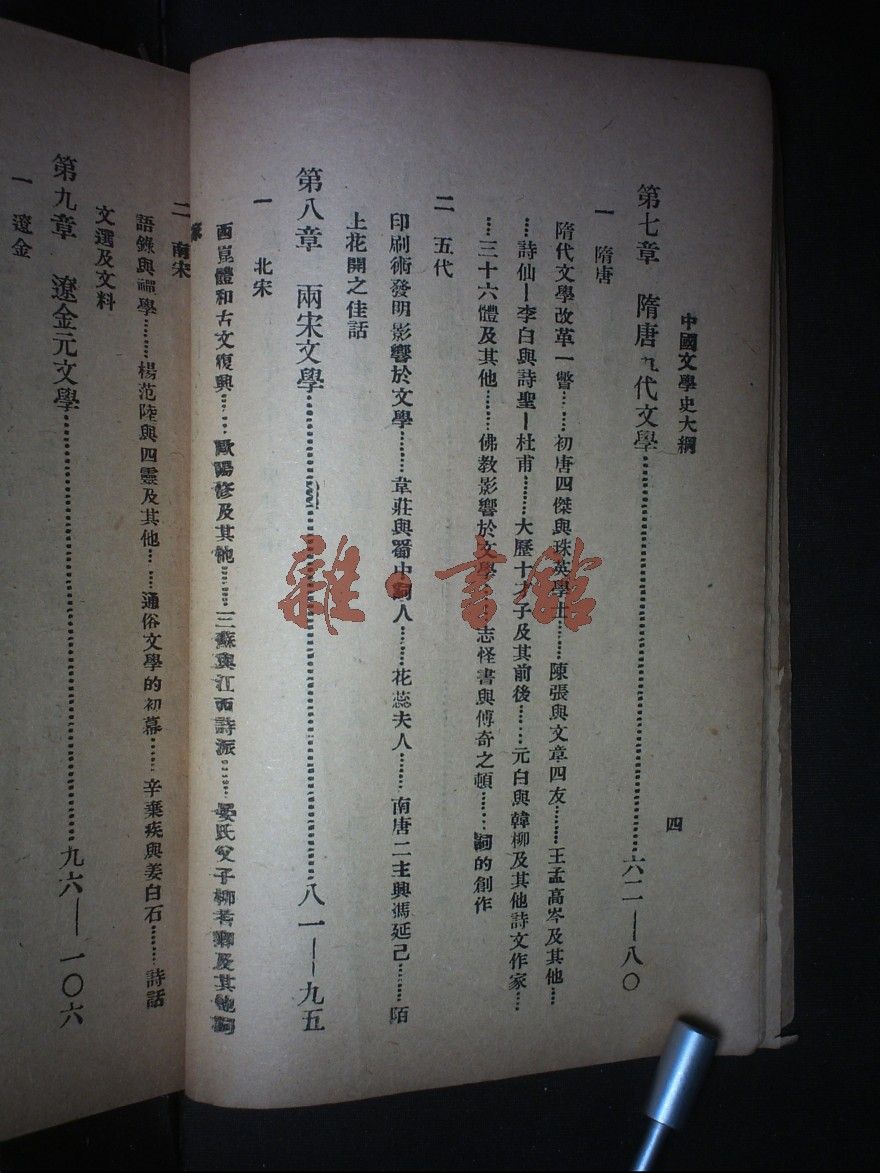 中國文學史大綱
四
第七章 隋唐九代文學……………………六二—八〇
一 隋唐
隋代文學改革一瞥……初唐四傑與珠英學士………陳張與文章四友………王孟高岑及其他……
……詩仙—李白與詩聖—杜甫………大歷十才子及其前後………元白與韓柳及其他詩文作家……
……三十六體及其他………佛教影響於文學 志怪書與傳奇之頓………詞的創作
二 五代
印刷術發明影響於文學………韋莊與蜀中詞人………花蕊夫人………南唐二主與馮延己………陌
上花開之佳話
第八章 兩宋文學……………………八一——九五
一 北宋
西崑體和古文復興………歐陽修及其他………三蘇與江西詩派………晏氏父子柳耆卿及其他詞
家
二 南宋
語錄與禪學………楊范陸與四靈及其他……通俗文學的初幕………辛棄疾與姜白石………詩話
文選及文料
第九章 遼金元文學……………………九六—一〇六
一 遼金
雜·書館